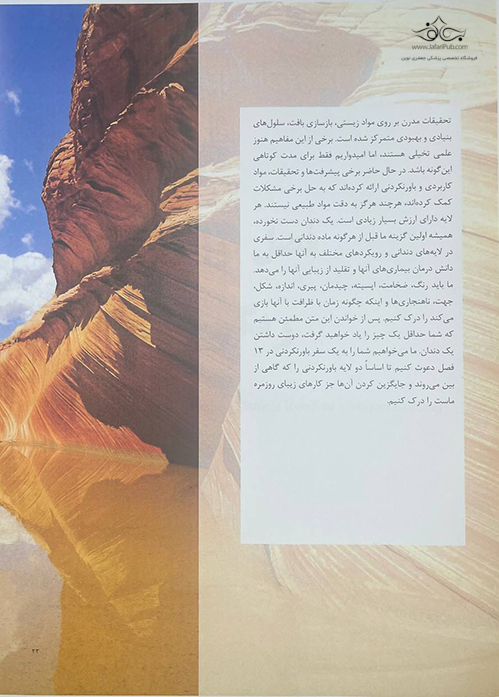 www.JafariPub.com
فروشگاه تخصصی پزشکی جعفری نوین
تحقیقات مدرن بر روی مواد زیستی، بازسازی بافت، سلول‌های
بنیادی و بهبودی متمرکز شده است. برخی از این مفاهیم هنوز
علمی تخیلی هستند، اما امیدواریم فقط برای مدت کوتاهی
این‌گونه باشد. در حال حاضر برخی پیشرفت‌ها و تحقیقات، مواد
کاربردی و باورنکردنی ارائه کرده‌اند که به حل برخی مشکلات
کمک کرده‌اند، هرچند هرگز به دقت مواد طبیعی نیستند. هر
لایه دارای ارزش بسیار زیادی است. یک دندان دست نخورده،
همیشه اولین گزینه ما قبل از هرگونه ماده دندانی است. سفری
در لایه‌های دندانی و رویکردهای مختلف به آنها حداقل به ما
دانش درمان بیماری‌های آنها و تقلید از زیبایی آنها را می‌دهد.
ما باید رنگ، ضخامت، اپسیته، چیدمان، پیری، اندازه، شکل،
جهت، ناهنجاری‌ها و اینکه چگونه زمان با ظرافت با آنها بازی
می‌کند را درک کنیم. پس از خواندن این متن مطمئن هستیم
که شما حداقل یک چیز را یاد خواهید گرفت، دوست داشتن
یک دندان. ما می‌خواهیم شما را به یک سفر باورنکردنی در ۱۳
فصل دعوت کنیم تا اساساً دو لایه باورنکردنی را که گاهی از
بین می‌روند و جایگزین کردن آن‌ها جز کارهای زیبای روزمره
ماست را درک کنیم.
۲۲